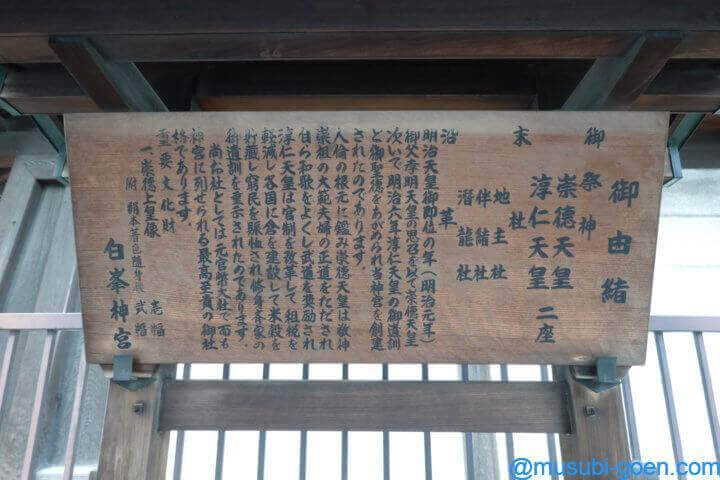 御由緒
御祭神
崇德天皇
淳仁天皇 二座
末社
地主社
伴緒社
潜龍社
沿革
明治天皇御即位の年(明治元年)
御父孝明天皇の思召を以て崇德天皇
次いで明治六年淳仁天皇の御遺訓
と御聖徳をあがめられ当神宮を創建
されたのであります。
人倫の根元に鑑み崇德天皇は敬神
崇祖の大範夫婦の正道をたゞされ
住ら和歌をよくし武道を奨励され
淳仁天皇は官制を改革して租税を
軽減し各国に倉を建設して米穀を
貯蔵し窮民を賑恤され修身斉家の
御遺訓を垂示されたのであります。
尚当社としては元官幣大社で而も
神宮に列せられる最高至貴の御社
格であります。
重要文化財
一崇徳上皇像 壱幅
附 絹本著色随身像 弐幅
白峯神宮
@musubi-goen.com